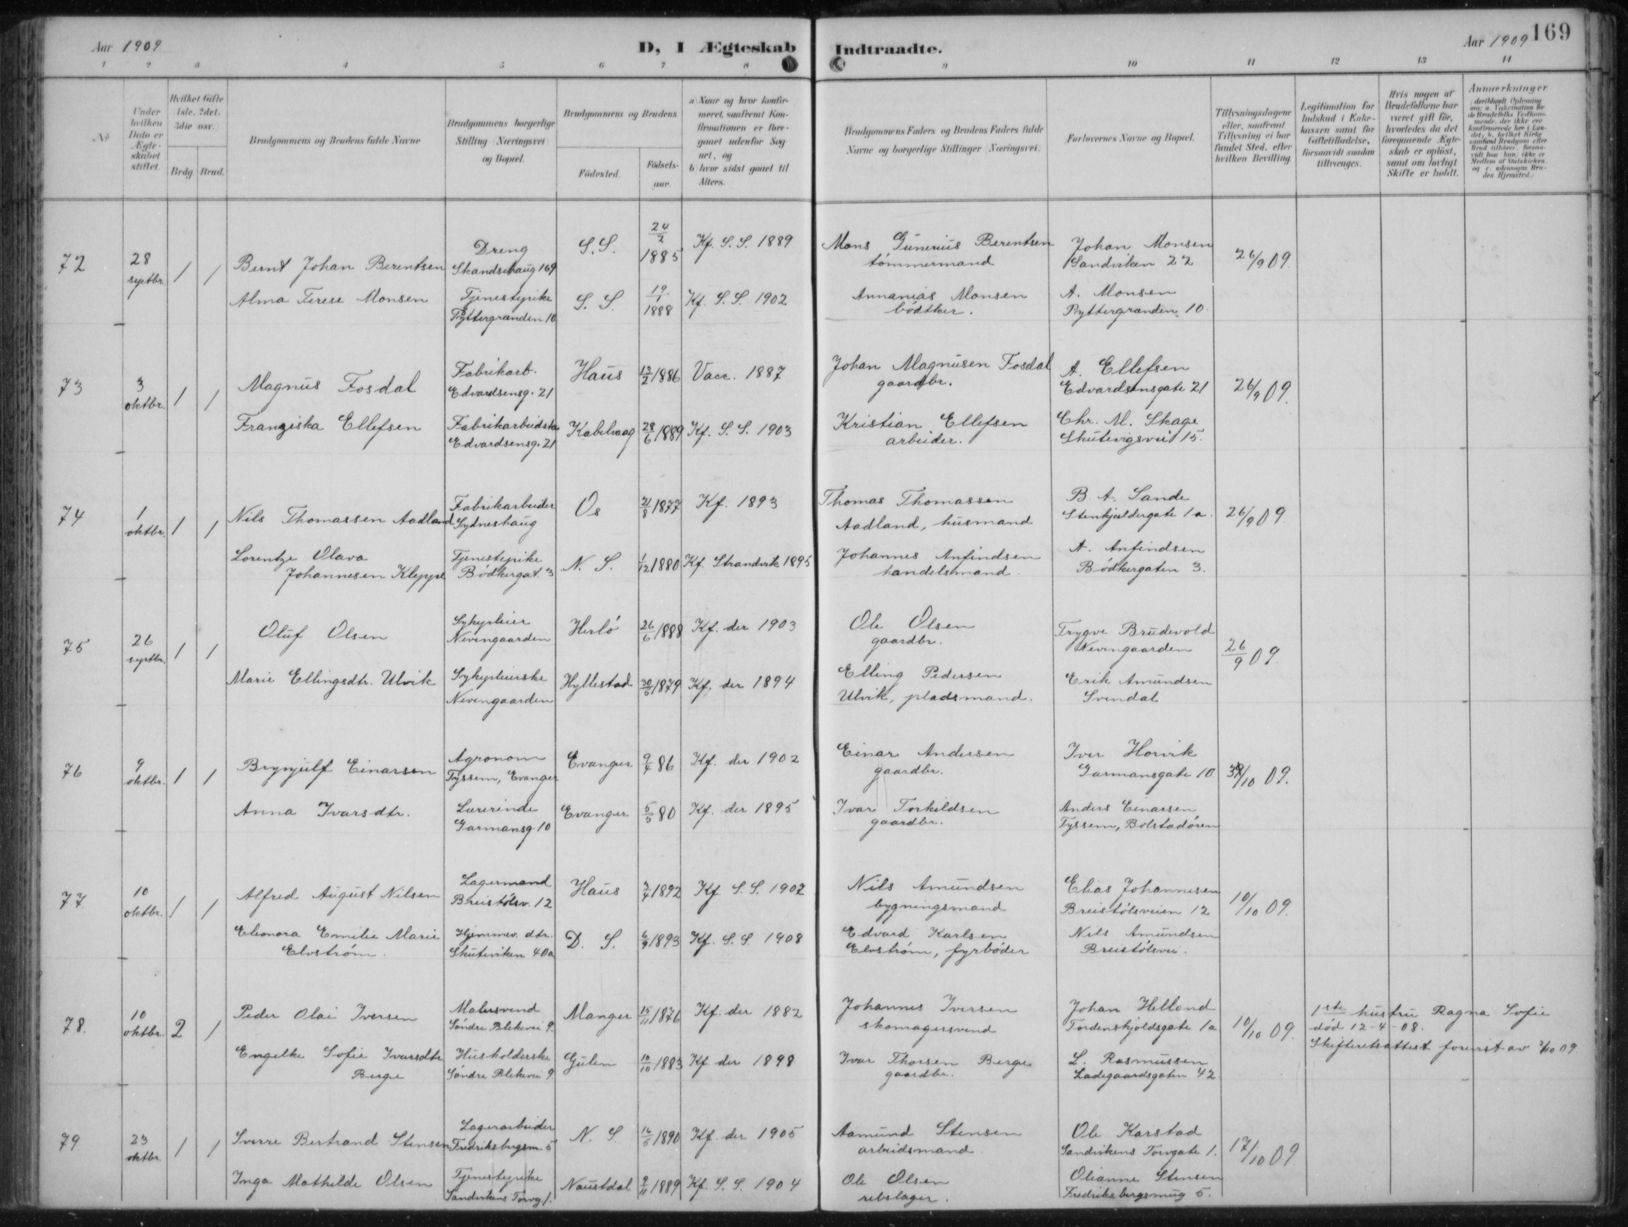 Aar 1909
D, I Ægteskab Indtraadte.
Aar 1909 169
1 2 3 4 5 6 7 8 9 10 11 12 13 14
No
Under hvilken Dato er Ægteskabet stiftet
Hvilket Gifte 1ste, 2det, 3die osv.
Brdg. Brud.
Brudgommens og Brudens fulde Navne
Brudgommens borgerlige Stilling (Næringsvei) og Bopæl.
Brudgommens og Brudens
Fødested.
Fødselsaar.
a) Naar og hvor konfirmeret, samt om Konfirmationen er foregaaet udenfor Sognet, og
b) hvor sidst gaaet til Alters.
Brudgommens Faders og Brudens Faders fulde Navne og borgerlige Stillinger (Næringsvei)
Forlovernes Navne og Bopæl.
Tillysningsdagene eller, saafremt Tillysning ei har fundet Sted, efter hvilken Bevilling
Legitimation for Indskud i Enkekassen samt for Giftetilladelse, forsaavidt saadan tiltrænges.
Hvis nogen af Brudefolkene har været gift før, hvorledes da det foregaaende Ægteskab er opløst, samt om lovligt Skifte er holdt.
Anmærkninger
72 28 septbr. 1 1 Bernt Johan Berentsen Dreng Skandsehaug 169 S.S. 24/2 1885 Kf. S.S. 1889 Mons Gunerius Berentsen tømmermand Johan Monsen Sandviken 22 26/9 09.
Alma Terese Monsen Tjenestepike Ryttergranden 10 S.S. 19/1 1888 Kf. S.S. 1902 Annanias Monsen bødtker. A. Monsen Ryttergranden 10.
73 3 oktbr. 1 1 Magnus Fosdal Fabrikarb. Edvardsensg. 21 Haus 13/2 1886 Vacc. 1887 Johan Magnusen Fosdal gaardbr. A. Ellefsen Edvardsensgate 21 26/9 09.
Franziska Ellefsen Fabrikarbeidske Edvardsensg. 21 Kabelvaag 28/6 1889 Kf. S.S. 1903 Kristian Ellefsen arbeider. Chr. M. Skage Skutevigsvei 15.
74 1 oktbr. 1 1 Nils Thomassen Aadland Fabrikarbeider Sydneshaug Os 1877 Kf. 1893 Thomas Thomassen Aadland, husmand B A. Sande Stenkjeldergate 1a. 26/9 09
Lorentze Olava Johannesen Kleppe Tjenestepike Bødkergat. 3 N.S. 1/12 1880 Kf. Strandvik 1895 Johannes Anfindsen handelsmand. A. Anfindsen Bødkergaten 3.
75 26 septbr. 1 1 Oluf Olsen Sykepleier Nevengaarden Herlø 26/6 1888 Kf. der 1903 Ole Olsen gaardbr. Trygve Brudevold Nevengaarden 26/9 09.
Marie Ellingsdtr. Ulvik Sykepleierske Nevengaarden Hyllestad 1879 Kf. der 1894 Elling Pedersen Ulvik, pladsmand. Erik Amundsen Svendal
76 9 oktbr. 1 1 Brynjulf Einarsen Agronom Fyssem, Evanger Evanger 9/4 86 Kf. der 1902 Einar Andersen gaardbr. Iver Horvik Garmansgate 10 /10 09.
Anna Ivarsdtr. Lærerinde Garmansg. 10 Evanger 5/5 80 Kf. der 1895 Ivar Torkildsen gaardbr. Anders Einarsen Fyssem, Bolstadøren
77. 10 oktbr. 1 1 Alfred August Nilsen Lagermand Breistølsv. 12 Haus 1892 Kf S.S. 1907 Nils Amundsen bygningsmand Elias Johannesen Breistølsveien 12 10/10 09.
Eleonora Emilie Marie Elvstrøm. Hjemmev. dtr. Skuteviken 40a D.S. 1893 Kf. S.S. 1908 Edvard Karlsen Elvstrøm, fyrbøder Nils Amundsen Breistølsvei.
78. 10 oktbr. 2 1 Peder Olai Iversen Malersvend Søndre Blekevei 9. Manger 15/11 1876 Kf. der 1882 Johannes Iversen skomagersvend Johan Helland Tordenskjoldsgate 1a 10/10 09. 1ste hustru Ragna Sofie død 12-4-08. Skifteretsattest forevist av /10 09.
Engelke Sofie Ivarsdtr. Berge Husholderske Søndre Blekevei 9 Gulen 10/10 1883 Kf der 1898 Ivar Thorsen Berge gaardbr. L. Rasmussen Ladegaardsgaten 42
79 23 oktbr. 1 1 Sverre Bertrand Stensen Lagerarbeider Fredriksbergsm. 5 N.S. 16/5 1890 Kf. der 1905 Aamund Stensen arbeidsmand. Ole Karstad Sandvikens Torvgate 1. 17/10 09
Inga Mathilde Olsen Tjenestepike Sandvikens Torvg 1. Naustdal 9/11 1889 Kf. S.S. 1904 Ole Olsen rebslager. Olianne Stensen Fredriksbergsmug 5.